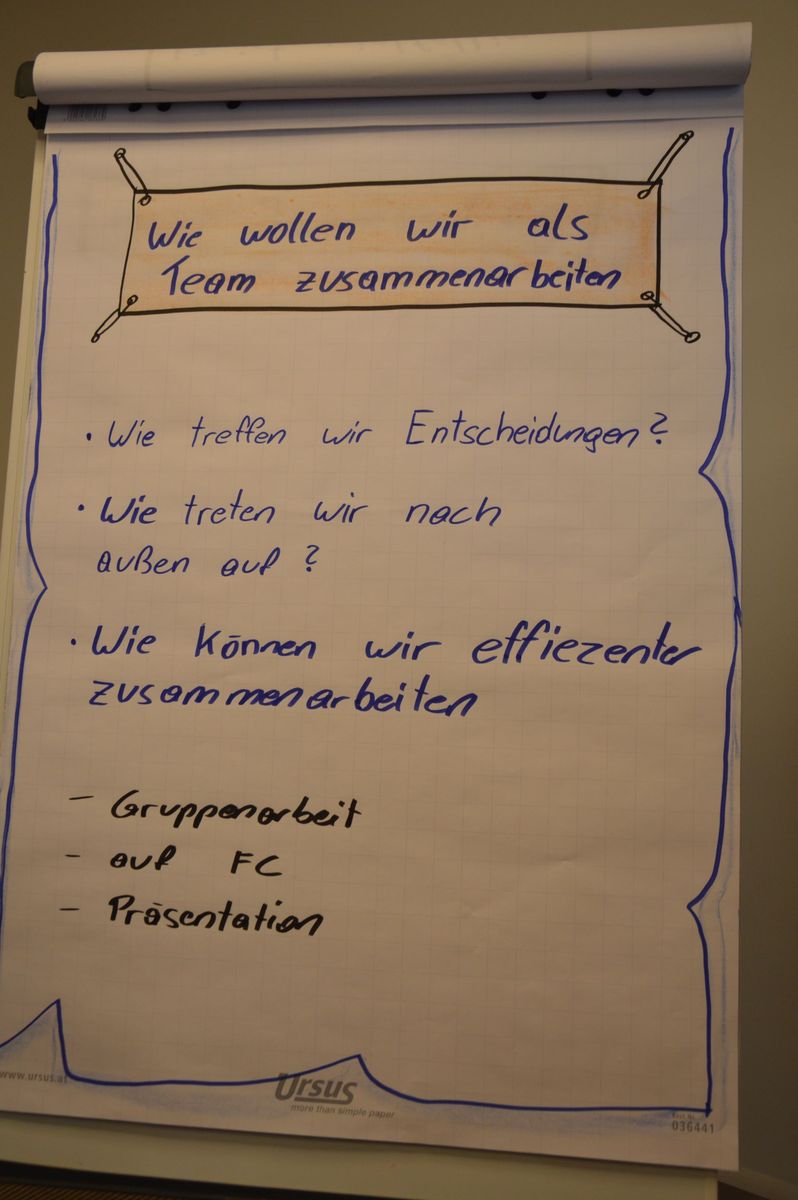 Wie wollen wir als
Team zusammenarbeiten
• Wie treffen wir Entscheidungen?
• Wie treten wir nach
außen auf?
• Wie können wir effiezenter
zusammenarbeiten
– Gruppenarbeit
– auf FC
– Präsentation
www.ursus.at
Ursus
more than simple paper
036441